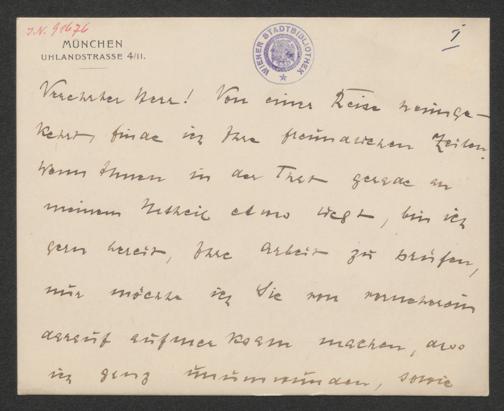 J.N. 91676
I
MÜNCHEN
UHLANDSTRASSE 4/II.
WIENER STADTBIBLIOTHEK
Verehrter Herr! Von einer Reise heimge-
kehrt, finde ich Ihre freundlichen Zeilen.
Wenn Ihnen in der That gerade an
meinem Urtheil etwas liegt, bin ich
gern bereit, Ihre Arbeit zu prüfen,
nur möchte ich Sie von vorneherein
darauf aufmerksam machen, dass
ich ganz unumwunden, sowie